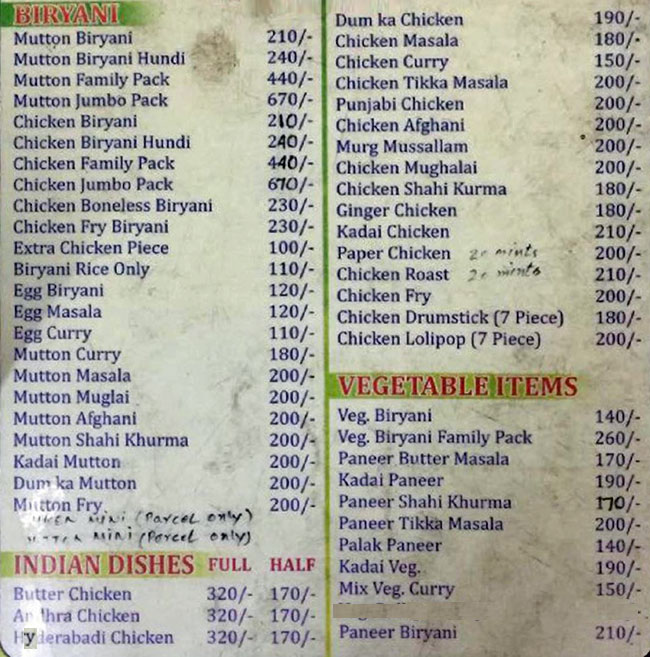 BIRYANI
Mutton Biryani 210/-
Mutton Biryani Hundi 240/-
Mutton Family Pack 440/-
Mutton Jumbo Pack 670/-
Chicken Biryani 210/-
Chicken Biryani Hundi 240/-
Chicken Family Pack 440/-
Chicken Jumbo Pack 670/-
Chicken Boneless Biryani 230/-
Chicken Fry Biryani 230/-
Extra Chicken Piece 100/-
Biryani Rice Only 110/-
Egg Biryani 120/-
Egg Masala 120/-
Egg Curry 110/-
Mutton Curry 180/-
Mutton Masala 200/-
Mutton Muglai 200/-
Mutton Afghani 200/-
Mutton Shahi Khurma 200/-
Kadai Mutton 200/-
Dum ka Mutton 200/-
Mutton Fry 200/-
MINI (Parcel only)
MINI (Parcel only)
INDIAN DISHES FULL HALF
Butter Chicken 320/- 170/-
Andhra Chicken 320/- 170/-
Hyderabadi Chicken 320/- 170/-
Dum ka Chicken 190/-
Chicken Masala 180/-
Chicken Curry 150/-
Chicken Tikka Masala 200/-
Punjabi Chicken 200/-
Chicken Afghani 200/-
Murg Mussallam 200/-
Chicken Mughalai 200/-
Chicken Shahi Kurma 180/-
Ginger Chicken 180/-
Kadai Chicken 210/-
Paper Chicken 20 mints 200/-
Chicken Roast 20 mints 210/-
Chicken Fry 200/-
Chicken Drumstick (7 Piece) 180/-
Chicken Lolipop (7 Piece) 200/-
VEGETABLE ITEMS
Veg. Biryani 140/-
Veg. Biryani Family Pack 260/-
Paneer Butter Masala 170/-
Kadai Paneer 190/-
Paneer Shahi Khurma 170/-
Paneer Tikka Masala 200/-
Palak Paneer 140/-
Kadai Veg. 190/-
Mix Veg. Curry 150/-
Paneer Biryani 210/-